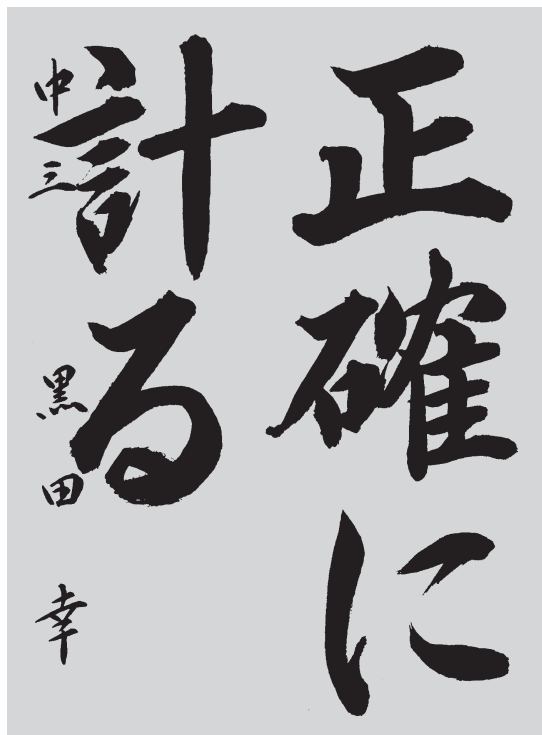 正確に
計る
中三 黒田 幸